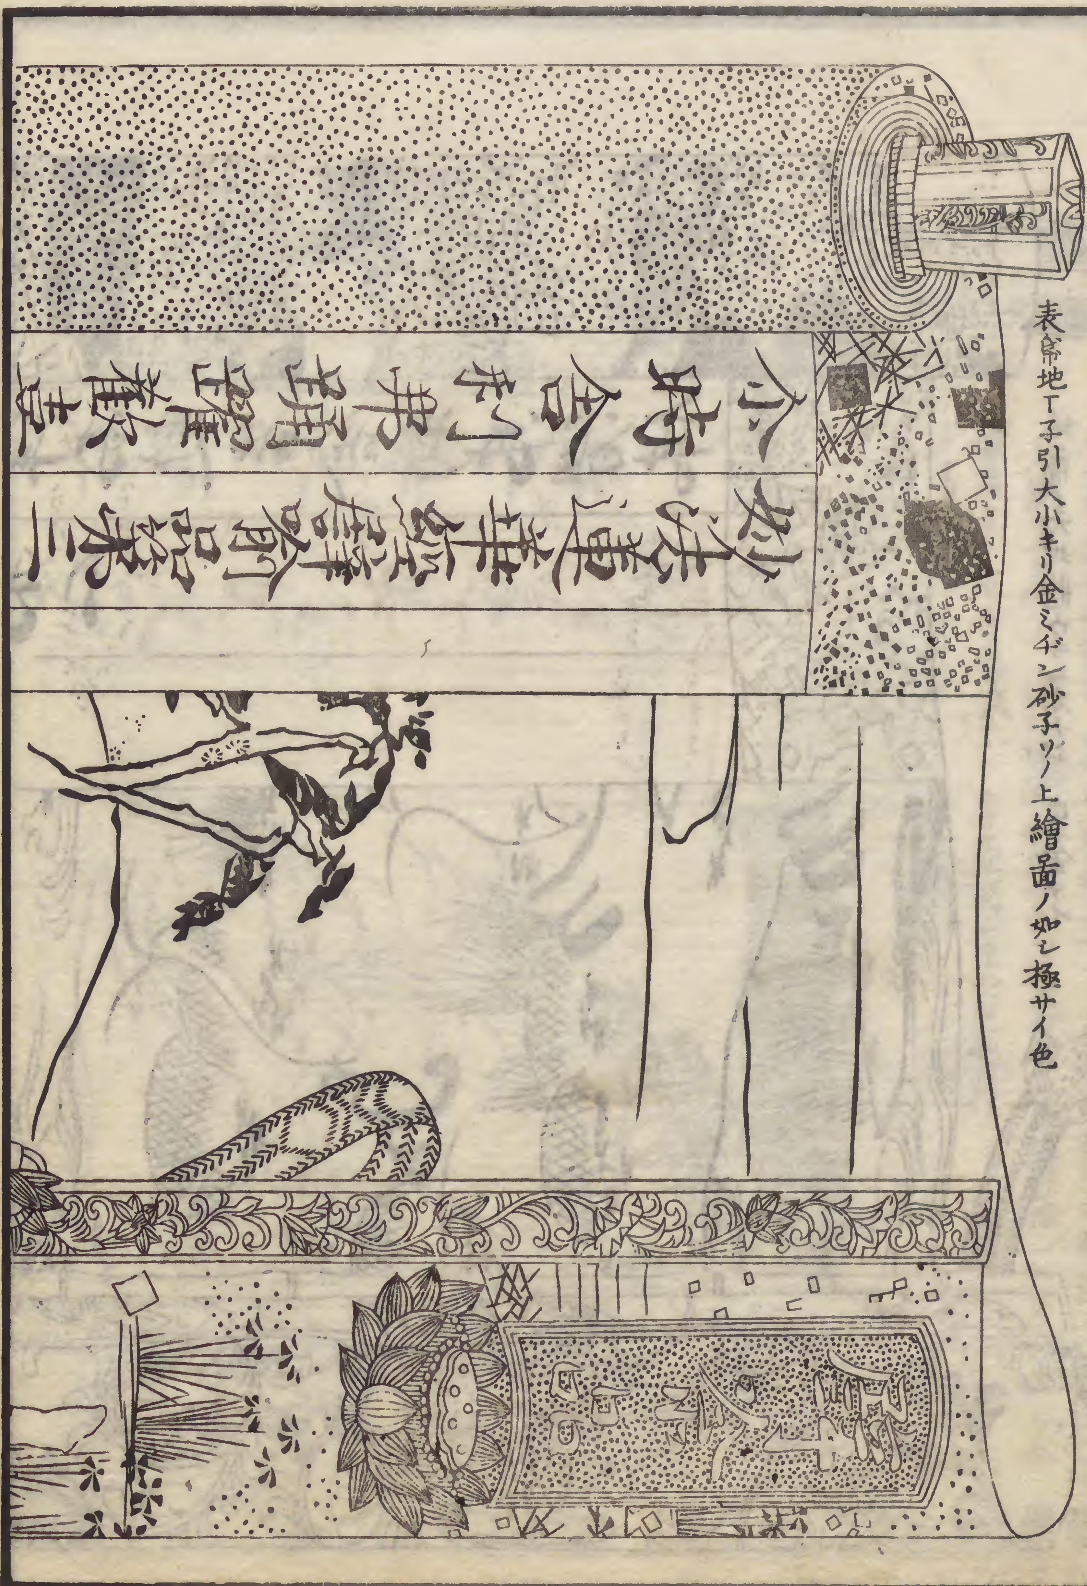 表帋地丁子引大小キリ金ミヂン砂子ソノ上繪圖ノ如シ極サイ色
妙法蓮華經譬喻品第三
尒時舍利弗踊躍歡喜